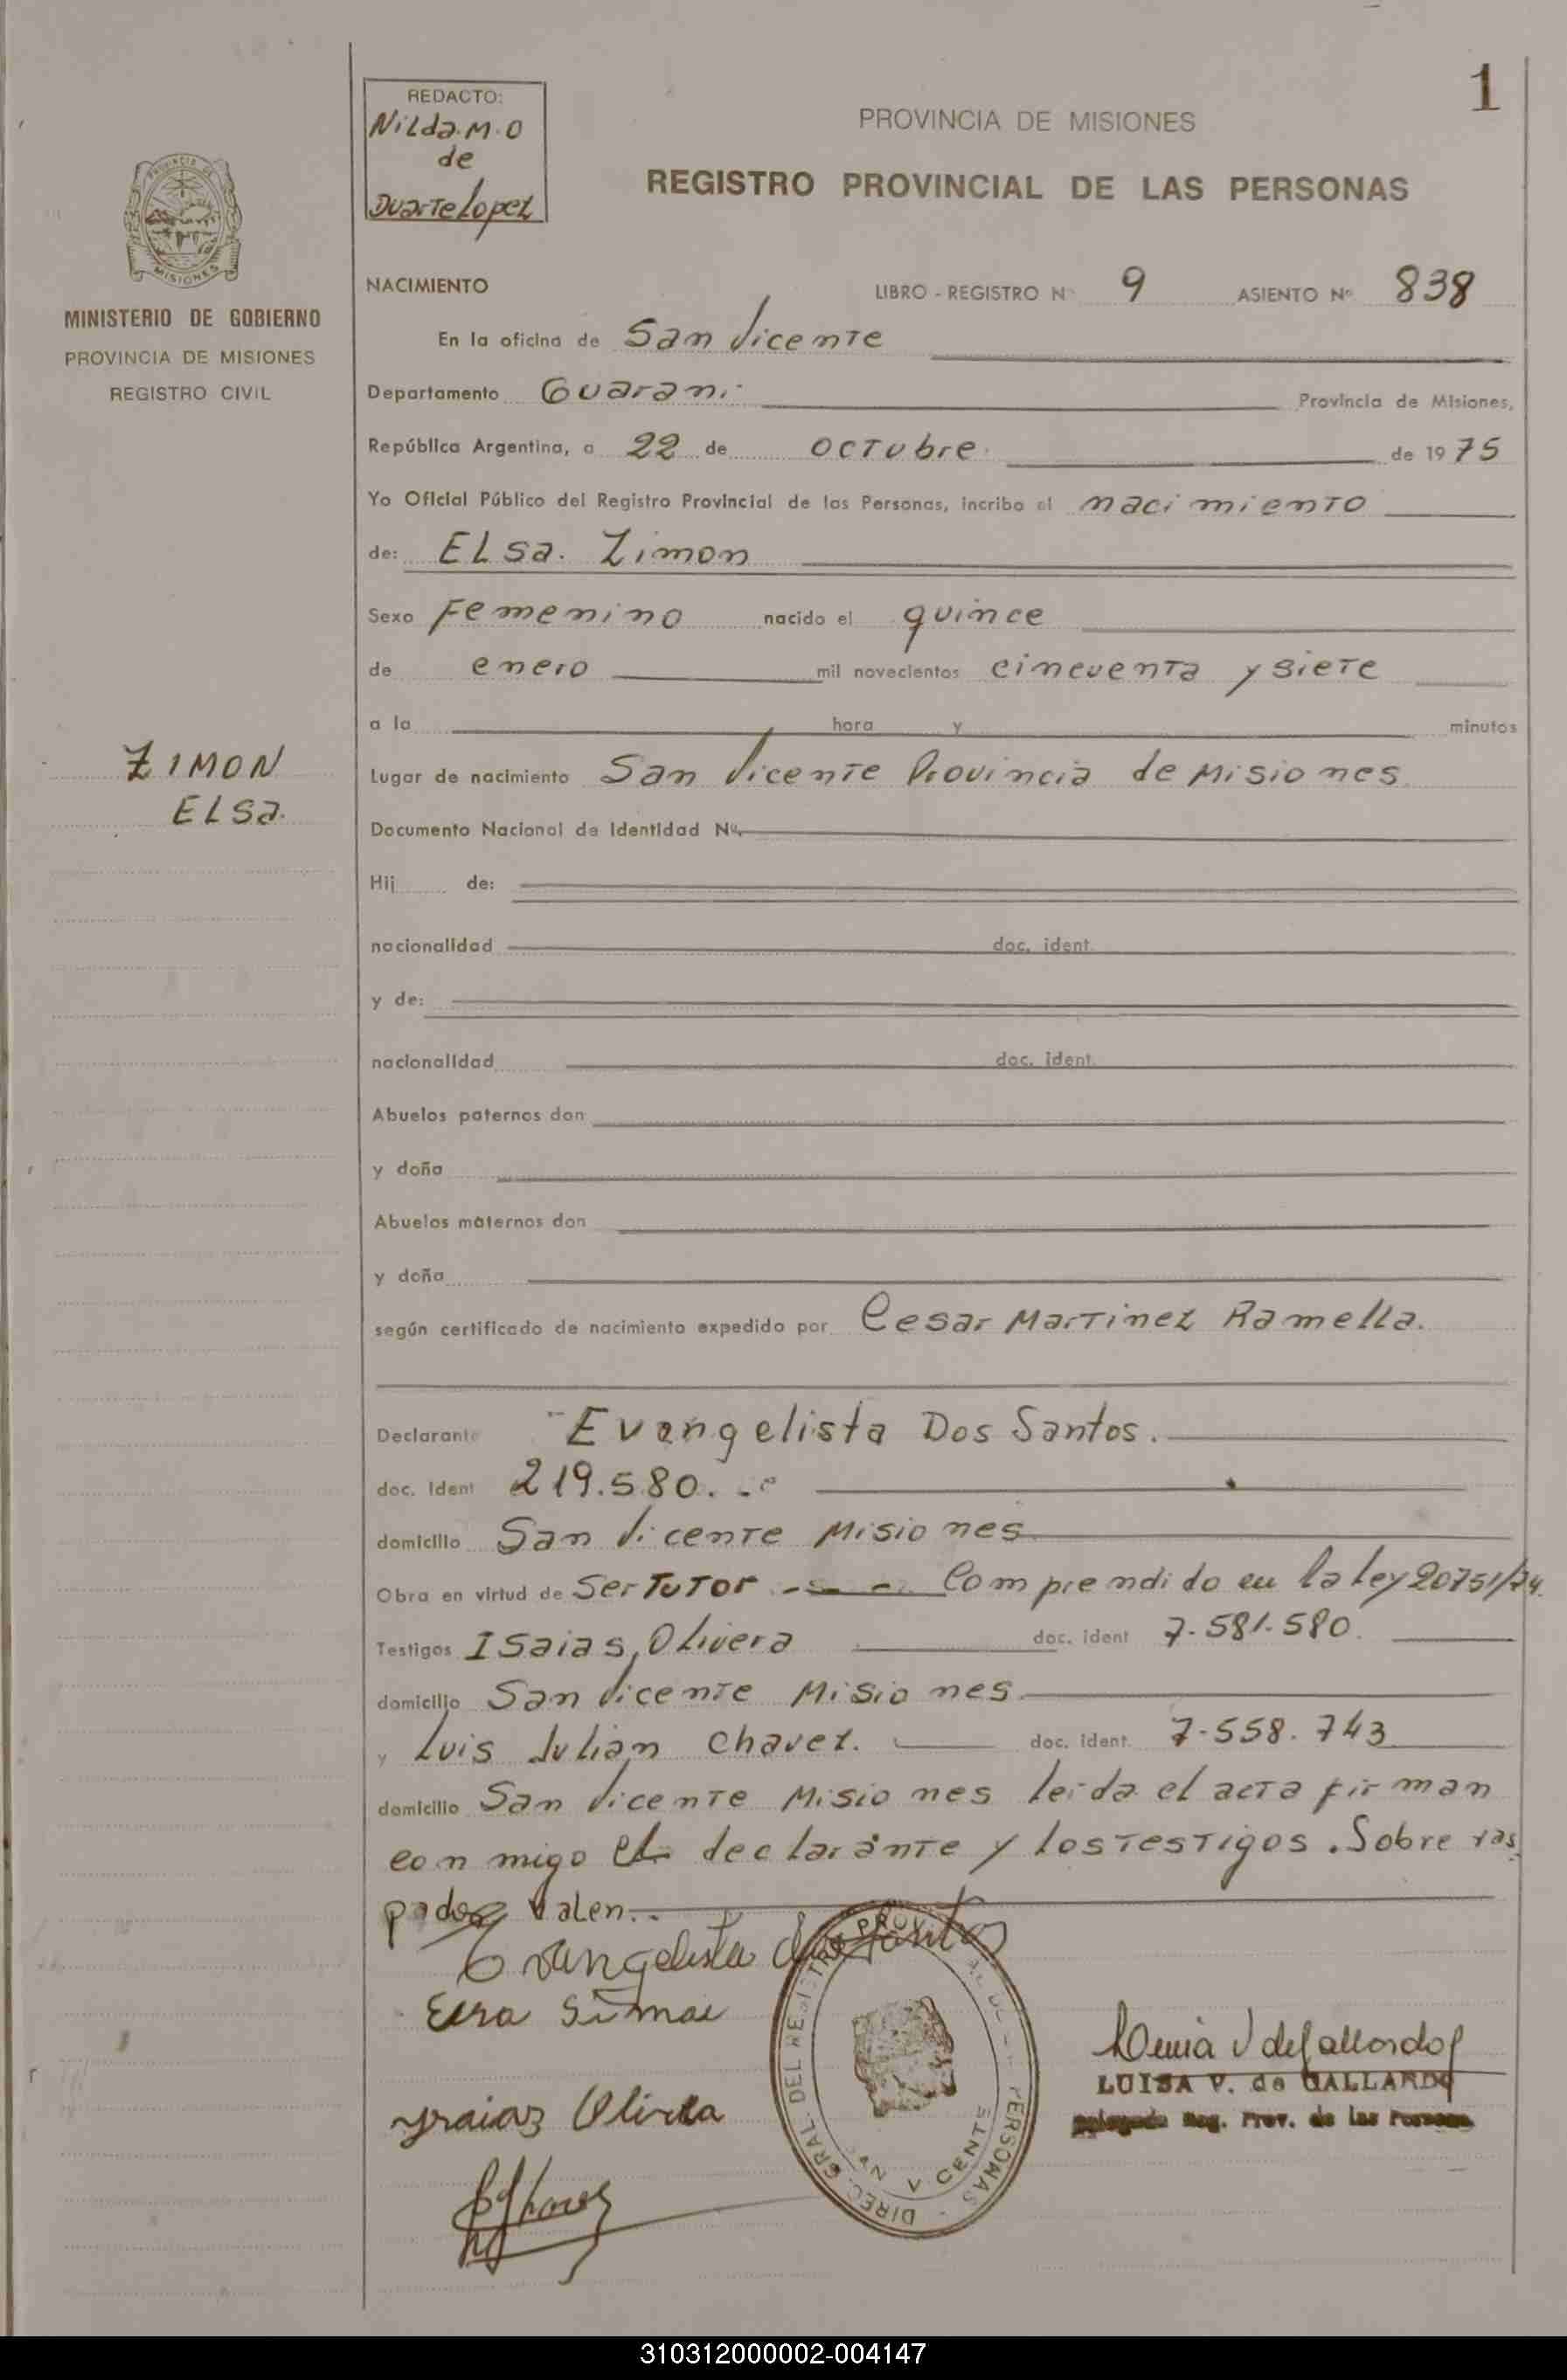 1
REDACTO:
Nilda.M.O
de
Duarte Lopez
PROVINCIA DE MISIONES
REGISTRO PROVINCIAL DE LAS PERSONAS
PROVINCIA DE
MISIONES
MINISTERIO DE GOBIERNO
PROVINCIA DE MISIONES
REGISTRO CIVIL
NACIMIENTO
LIBRO - REGISTRO Nº 9 ASIENTO Nº 838
En la oficina de San Vicente
Departamento Guarani Provincia de Misiones,
República Argentina, a 22 de octubre de 1975
Yo Oficial Público del Registro Provincial de las Personas, incribo el nacimiento
de: ELsa. Zimon
Sexo Femenino nacido el quince
de enero mil novecientos cincuenta y siete
a la hora y minutos
ZIMON
ELsa.
Lugar de nacimiento San Vicente Provincia de Misiones
Documento Nacional de Identidad Nº
Hij de:
nacionalidad doc. ident.
y de:
nacionalidad doc. ident.
Abuelos paternos don
y doña
Abuelos maternos don
y doña
según certificado de nacimiento expedido por Cesar Martinez Ramella.
Declarante Evangelista Dos Santos.
doc. Ident 219.580.
domicilio San Vicente Misiones
Obra en virtud de Ser Tutor Comprendido en la ley 20751/74.
Testigos Isaias, Olivera doc. ident 7.581.580.
domicilio San Vicente Misiones
y Luis Julian Chavez. doc. ident. 7-558.743
domicilio San Vicente Misiones leida el acta firman
con migo el declarante y los Testigos. Sobre ras
pados valen..
Evangelista dos Santos
Isaias Olivera
DIREC. GRAL. DEL REGISTRO PROV. DE PERSONAS
SAN VICENTE
Luisa V de Gallardo
LUISA V. de GALLARDO
Delegada Reg. Prov. de las Personas
310312000002-004147